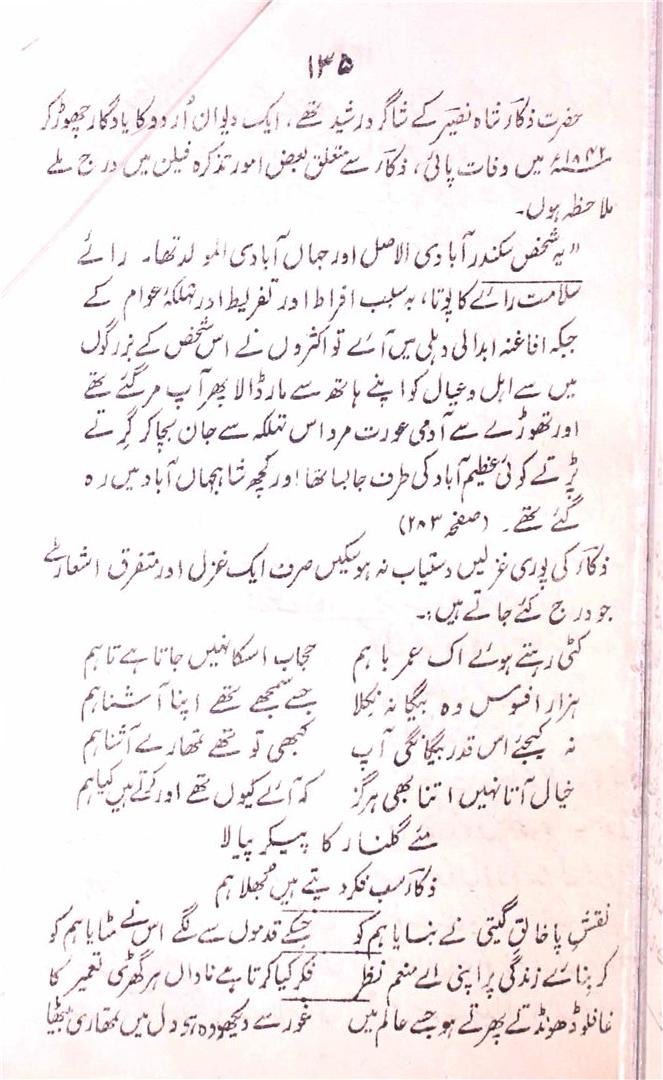 ۱۳۵
حضرت ذکاؔ شاہ نصیرؔ کے شاگرد رشید تھے، ایک دیوان اُردو کا یادگار چھوڑ کر
۱۸۴۲ء میں وفات پائی، ذکاؔ سے متعلق بعض امور تذکرہ فیلن میں درج ملے
ملاحظہ ہوں۔
"یہ شخص سکندر آبادی الاصل اور جہاں آبادی المولد تھا۔ رائے
سلامت رائے کا پوتا، بہ سبب افراط اور تفریط اور تہلکۂ عوام کے
جبکہ افاغنہ ابدالی دہلی میں آئے تو اکثروں نے اس شخص کے بزرگوں
میں سے اہل و عیال کو اپنے ہاتھ سے مار ڈالا پھر آپ مر گئے تھے
اور تھوڑے سے آدمی عورت مرد اس تہلکہ سے جان بچا کر گرتے
پڑتے کوئی عظیم آباد کی طرف جا بسا تھا اور کچھ شاہجہاں آباد میں رہ
گئے تھے۔ (صفحہ ۲۸۳)
ذکاؔ کی پوری غزلیں دستیاب نہ ہو سکیں صرف ایک غزل اور متفرق اشعار ملے
جو درج کئے جاتے ہیں:۔
کٹی رہتے ہوئے اک عمر باہم حجاب اسکا نہیں جاتا ہے تاہم
ہزار افسوس وہ بیگانہ نکلا جسے سمجھے تھے اپنا آشنا ہم
نہ کیجئے اس قدر بیگانگی آپ کبھی تو تھے تمھارے آشنا ہم
خیال آتا نہیں اتنا بھی ہرگز کہ آئے کیوں تھے اور کرتے ہیں کیا ہم
مئے گلنار کا پیکر پیالا
ذکاؔ سب فکر دیتے ہیں بُھلا ہم
نقشِ پا خالقِ گیتی نے بنایا ہم کو جسکے قدموں سے لگے اس نے مٹایا ہم کو
کر بنائے زندگی پر اپنی اے منعم نظر فکر کیا کرتا ہے ناداں ہر گھڑی تعمیر کا
غافلو ڈھونڈتے پھرتے ہو جسے عالم میں غور سے دیکھو وہ ہی دل میں تمھاری بیٹھا